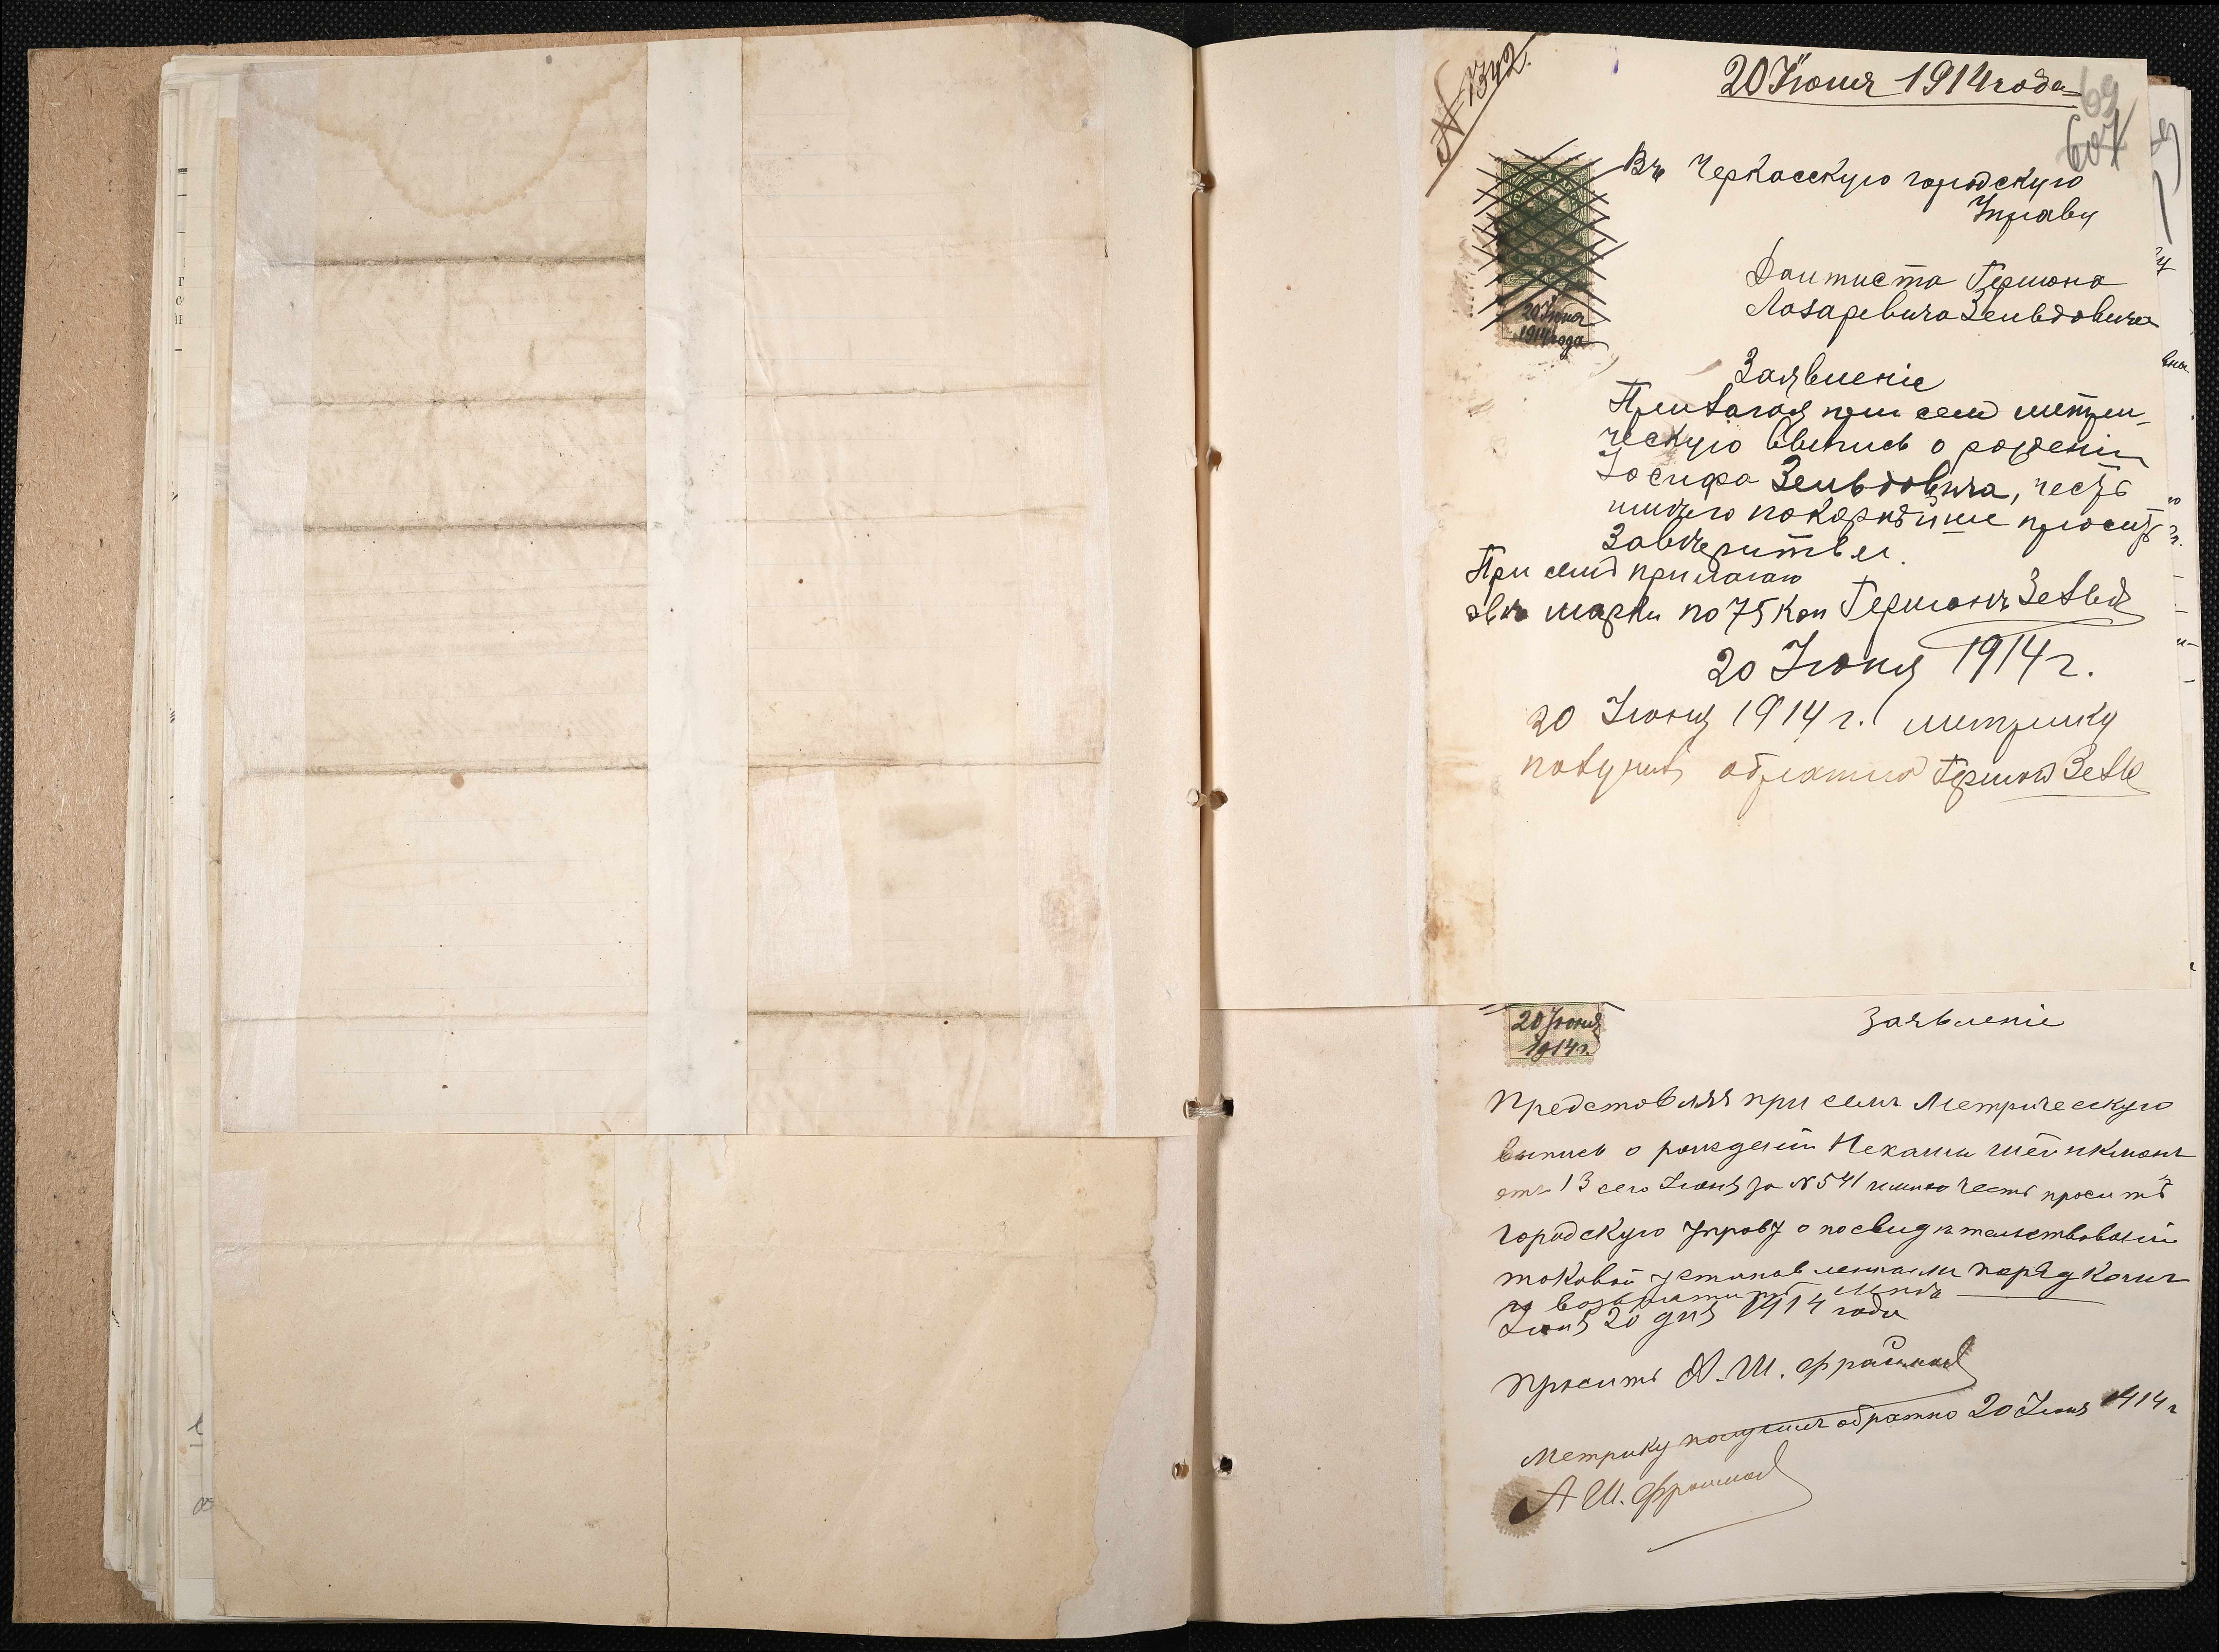 N 1342.
20 Іюня 1914 года
69
607
Въ Черкасскую городскую
Управу
Дантиста Германа
Лазаревича Зельдовича
20 Іюня
1914 года
Заявленіе
Прилагая при семъ метри-
ческую выпись о рожденіи
Іосифа Зельдовича, честь
имѣю покорнѣйше просить
Завѣрить ея.
При семъ прилагаю
двѣ марки по 75 коп Германъ Зельд
20 Іюня 1914 г.
20 Іюня 1914 г. метрику
получилъ обратно Германъ Зель
20 Іюня
1914 г.
Заявленіе
Представляя при семъ Метрическую
выпись о рожденіи Нехамы Штейнкманъ
отъ 13 сего Іюня за N 541 имѣю честь просить
городскую управу о посвидѣтельствованіи
таковой установленнымъ порядкомъ
и возвратить мнѣ
Іюня 20 дня 1914 года
Проситъ А. Ш.
Метрику получилъ обратно 20 Іюня 1914 г
А Ш.